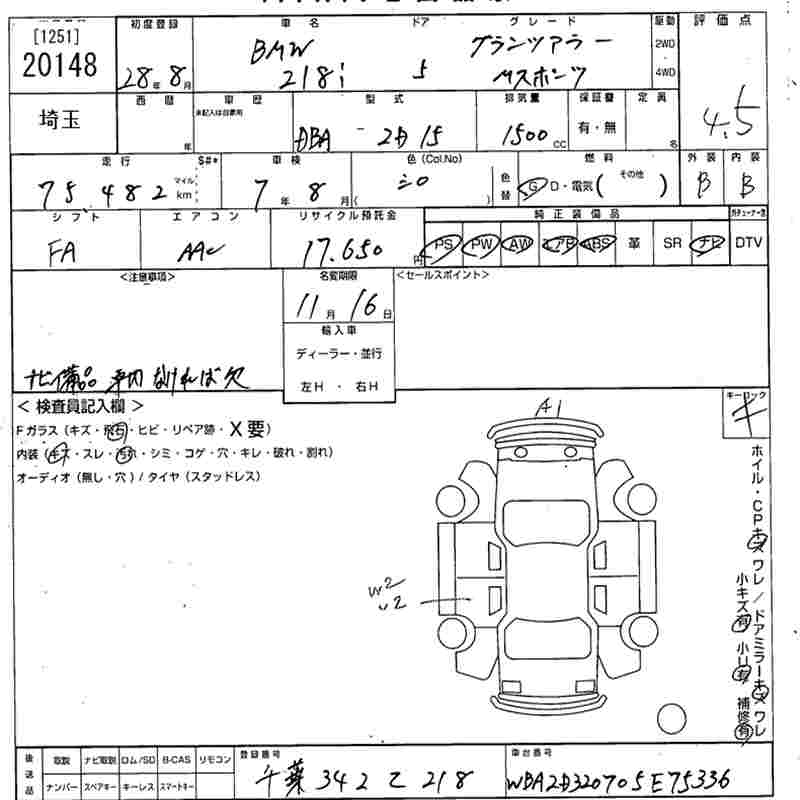 [1251]
20148
初度登録
28年 8月
車名
BMW
218i
ドア
5
グレード
グランツアラー
Mスポーツ
駆動
2WD
4WD
評価点
4.5
埼玉
西暦
年
車歴
未記入は自家用
型式
DBA 2D15
排気量
1500 CC
保証書
有・無
定員
名
走行
75482
マイル
km
S#*
車検
7年 8月
色 (Col.No)
シロ
( )
色替
燃料
G D・電気 ( その他 )
外装
B
内装
B
シフト
FA
エアコン
AAC
リサイクル預託金
17.650円
純正装備品
PS PW AW エアB ABS 革 SR ナビ
DTV
<注意事項>
ナビ備品 車内なければ欠
名変期限
11月 16日
輸入車
ディーラー・並行
左H ・ 右H
<セールスポイント>
< 検査員記入欄 >
Fガラス (キズ・飛石・ヒビ・リペア跡・X要)
内装 (キズ・スレ・汚れ・シミ・コゲ・穴・キレ・破れ・割れ)
オーディオ (無し・穴) / タイヤ (スタッドレス)
A1
W2
U2
キーロック
キ
ホイル・CPキズ ワレ / ドアミラーキズ ワレ
小キズ有 小U有 補修有
後送品
取説 ナビ取説 ロム/SD B-CAS リモコン
ナンバー スペアキー キーレス スマートキー
登録番号
千葉 342 て 218
車台番号
WBA2D320705E75336